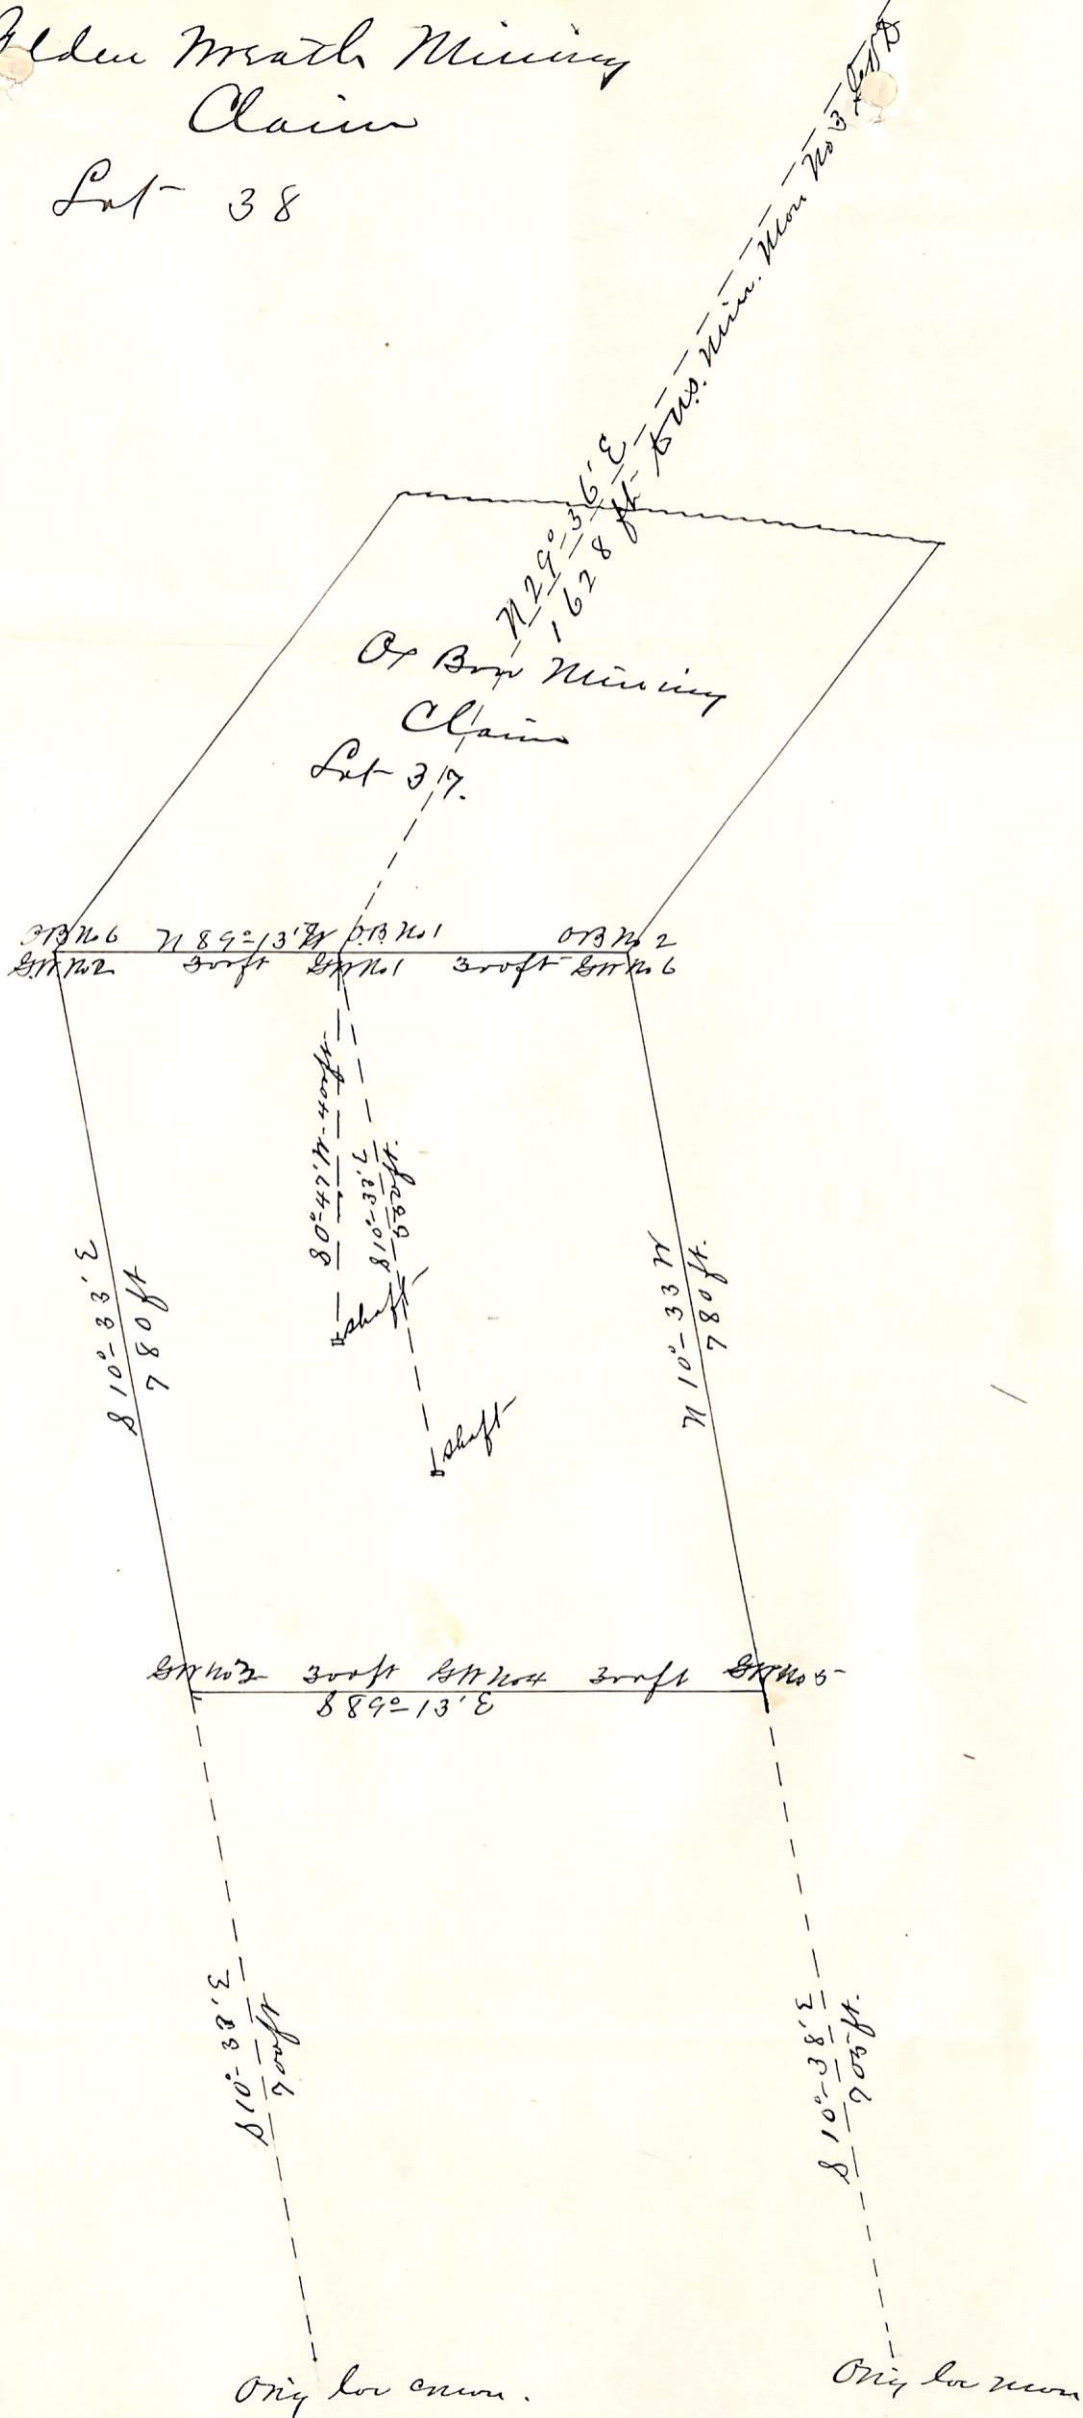 Golden Wreath Mining
Claim
Lot 38
N 29°-36' E
1628 ft to U.S. Min. Mon No 3
Ox Bow Mining
Claim
Lot 37.
OB No 6 N 89°-13' W O.B. No 1 OB No 2
GW No 2 300 ft GW No 1 300 ft GW No 6
S 0°-47' W - 400 ft.
S 10°-33' E
shaft
shaft
S 10°-33' E
780 ft
N 10°-33 W
780 ft.
GW No 3 300 ft GW No 4 300 ft GW No 5
S 89°-13' E
S 10°-33' E
700 ft
S 10°-38' E
705 ft.
Orig loc mon.
Orig loc mon